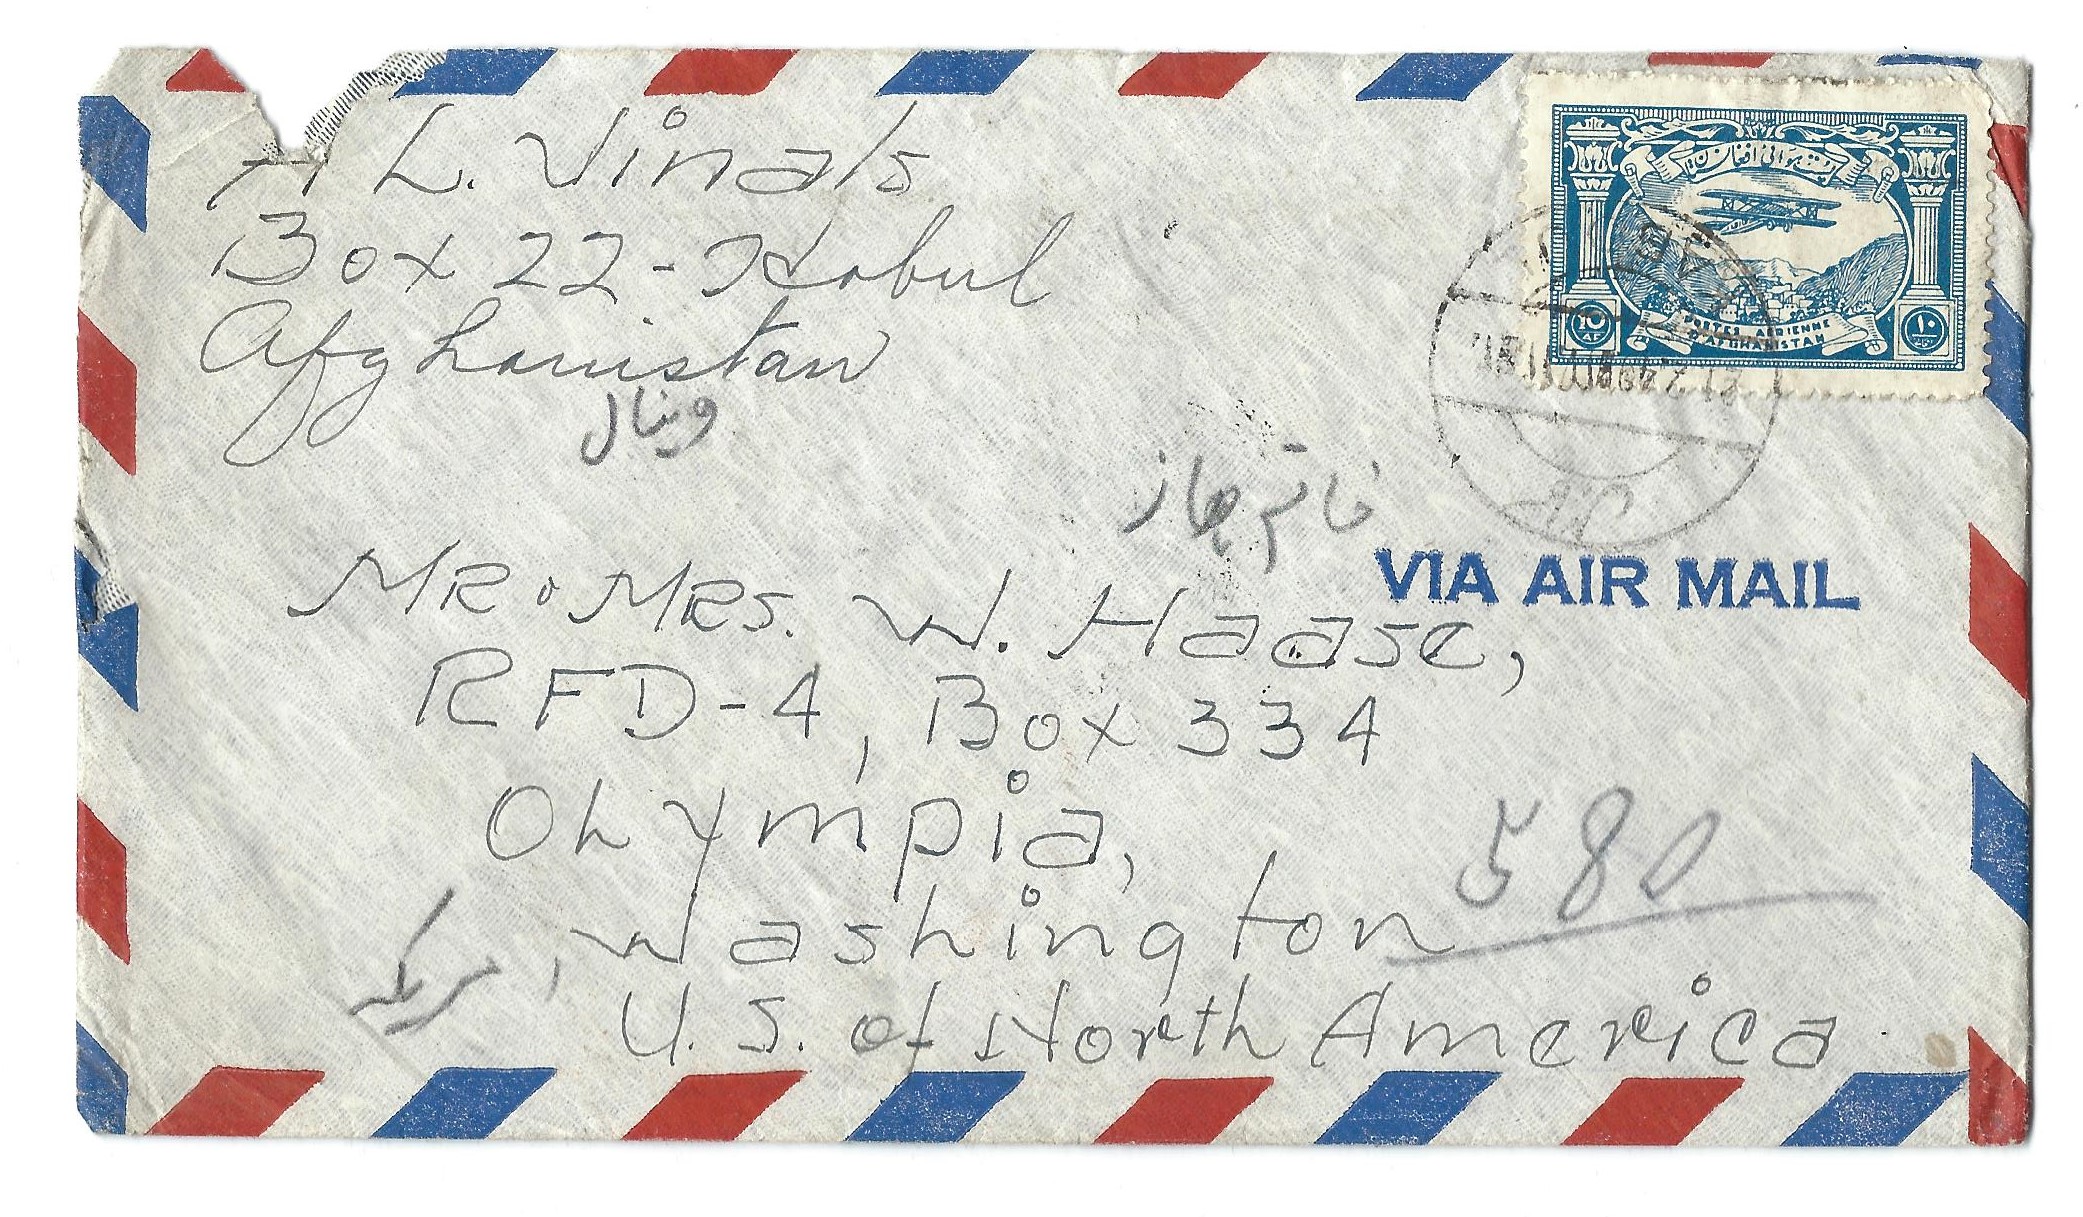 A L. Vinals
Box 22 - Kabul
Afghanistan
وینال
پست هوائی افغانستان
POSTES AERIENNE
D'AFGHANISTAN
10
AF
۱۰
VIA AIR MAIL
MR & MRS. W. Haase,
RFD-4, Box 334
Olympia,
Washington
580
U. S. of North America
امریکه